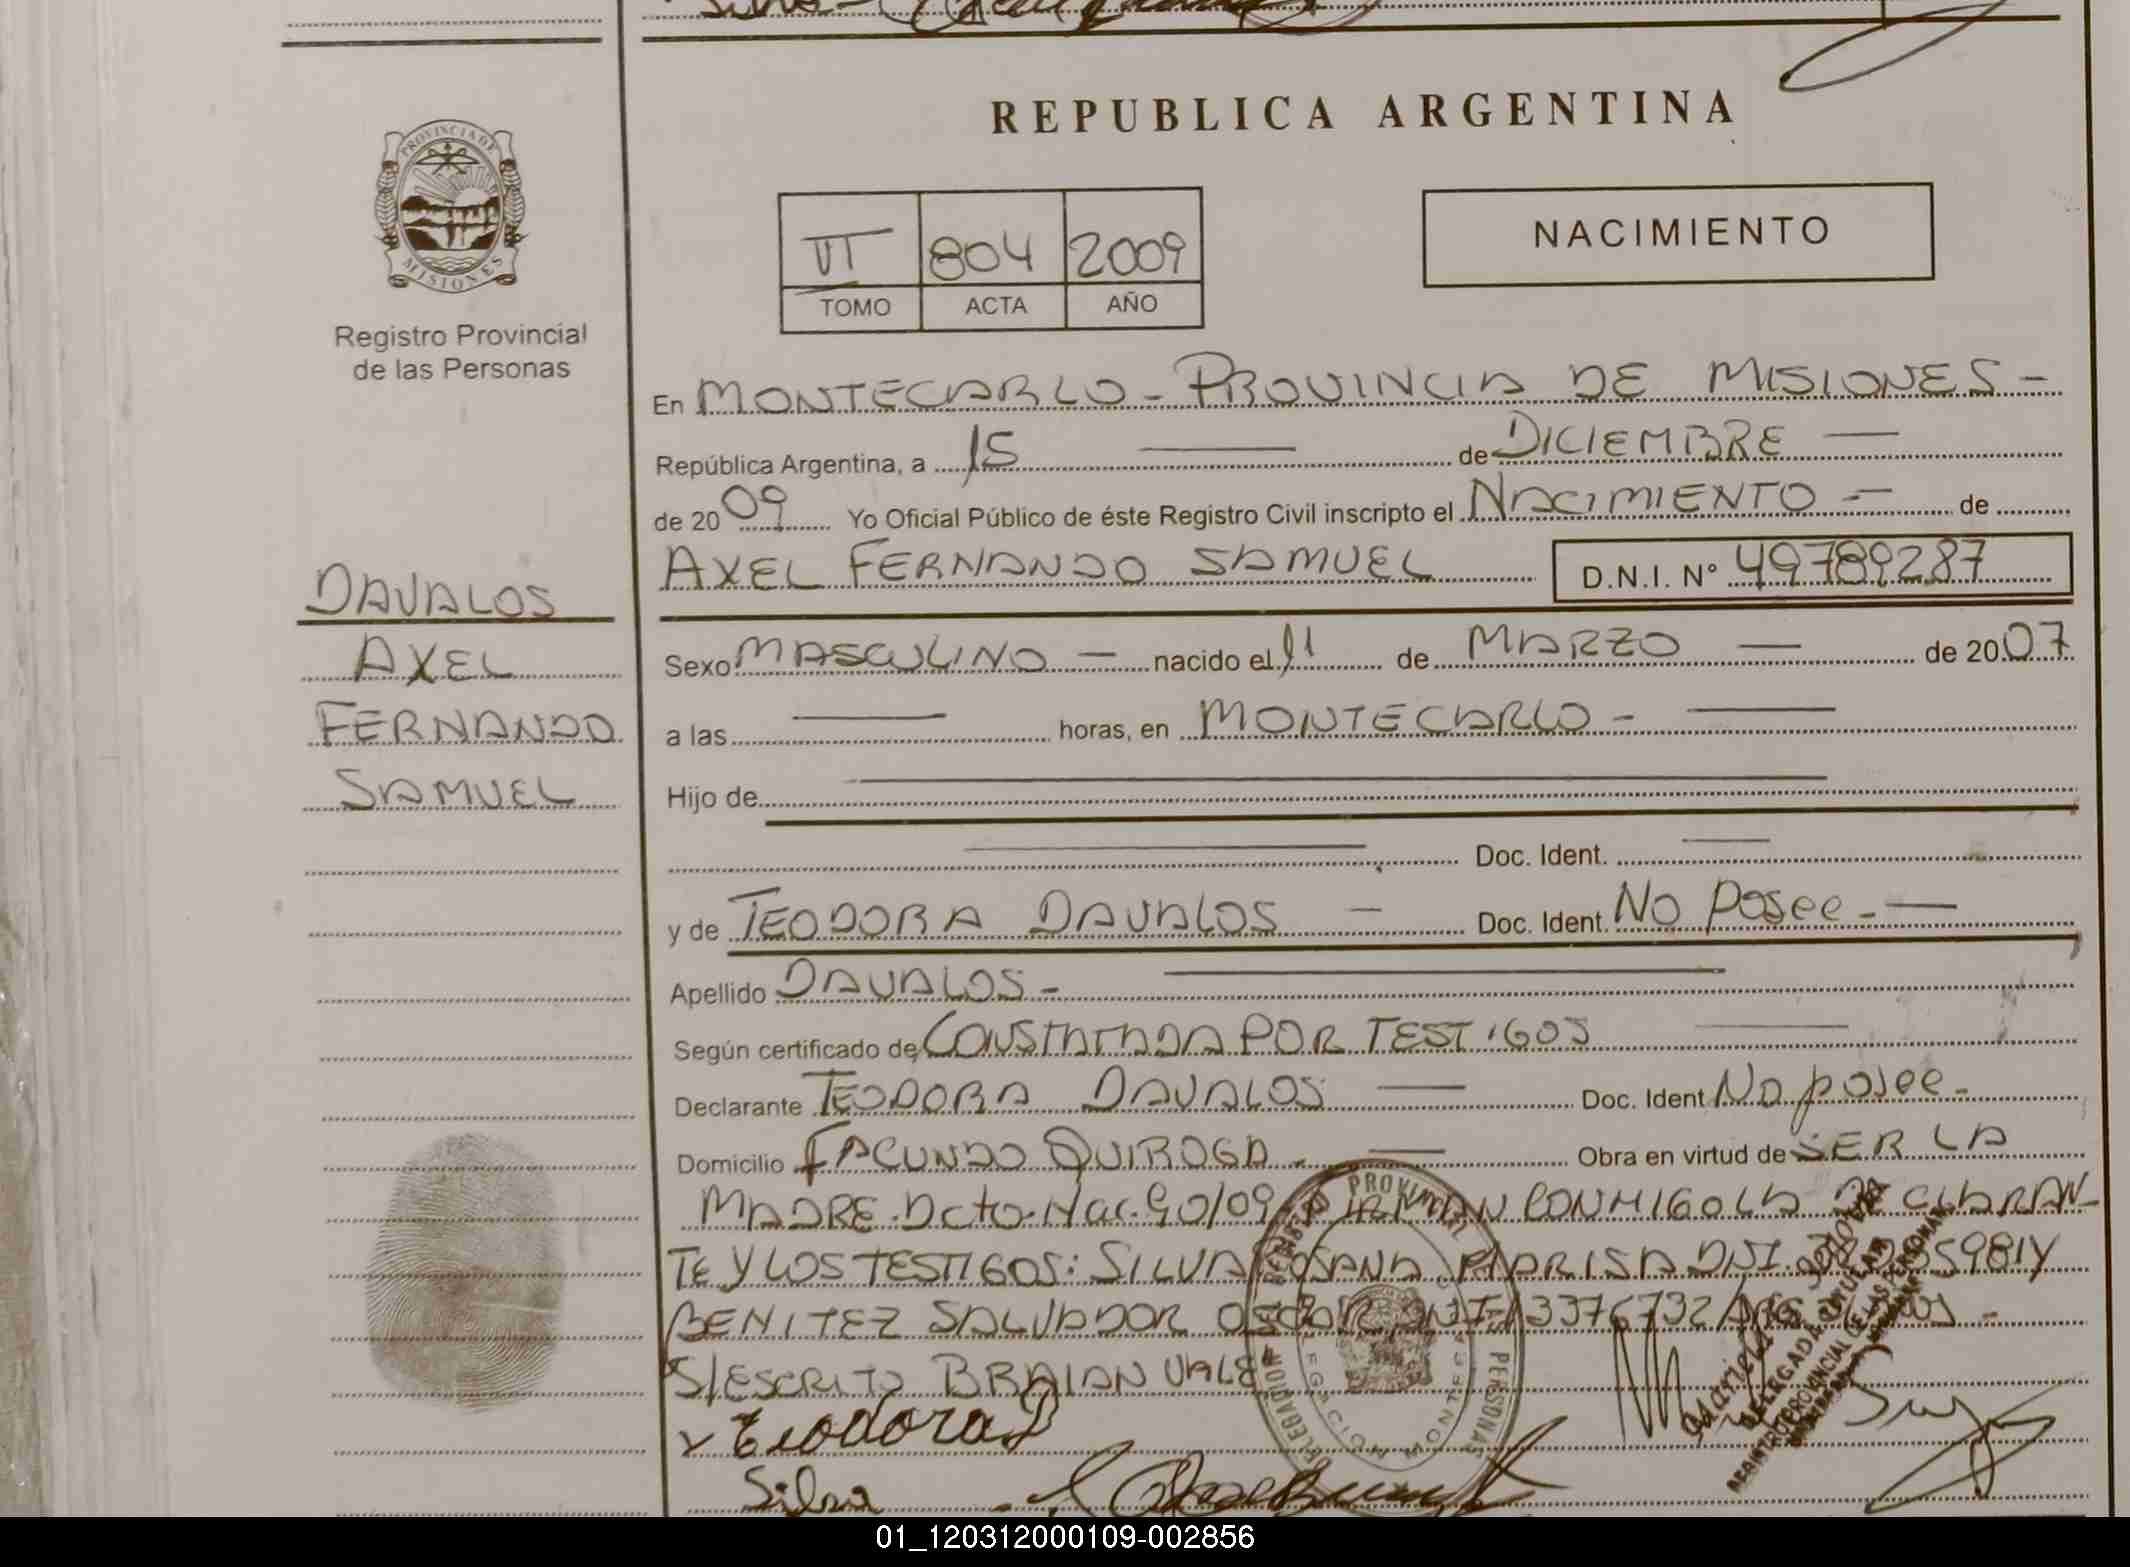 REPUBLICA ARGENTINA
PROVINCIA DE MISIONES
Registro Provincial
de las Personas
VI 804 2009
TOMO ACTA AÑO
NACIMIENTO
En MONTECARLO - PROVINCIA DE MISIONES -
República Argentina, a 15 de DICIEMBRE
de 2009 Yo Oficial Público de éste Registro Civil inscripto el NACIMIENTO - de
AXEL FERNANDO SAMUEL D.N.I. Nº 49789287
DAVALOS
AXEL
FERNANDO
SAMUEL
Sexo MASCULINO - nacido el 11 de MARZO - de 2007
a las horas, en MONTECARLO -
Hijo de
Doc. Ident.
y de TEODORA DAVALOS - Doc. Ident. No Posee -
Apellido DAVALOS -
Según certificado de CONSTATADA POR TESTIGOS
Declarante TEODORA DAVALOS Doc. Ident No posee -
Domicilio FACUNDO QUIROGA - Obra en virtud de SER LA
MADRE. Dcto. Nac. 90/09. FIRMAN CONMIGO LA DECLARAN-
TE Y LOS TESTIGOS: SILVA ROSANA MARISA DNI. 5981 Y
BENITEZ SALVADOR OSCAR DNI 13376732
S/ESCRITO BRAIAN VALE
Teodora D
Silva
REGISTRO PROVINCIAL DE LAS PERSONAS
DELEGACION MONTECARLO
DELEGADA TITULAR
REGISTRO PROVINCIAL DE LAS PERSONAS
01_120312000109-002856